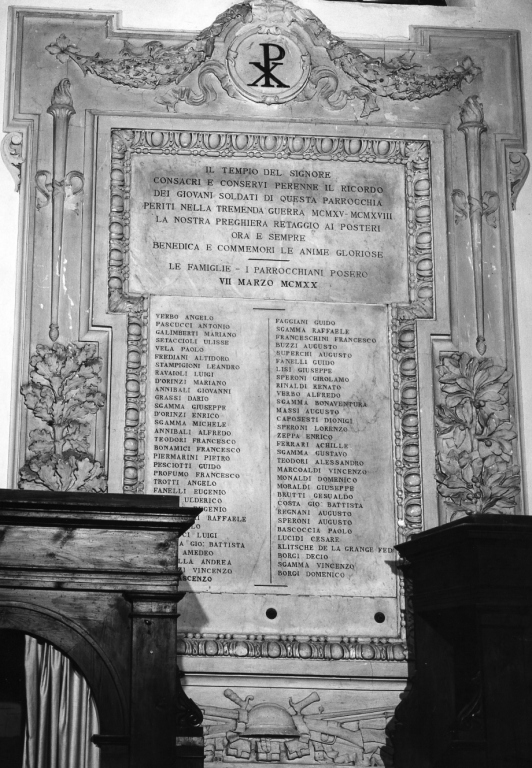 IL TEMPIO DEL SIGNORE
CONSACRI E CONSERVI PERENNE IL RICORDO
DEI GIOVANI SOLDATI DI QUESTA PARROCCHIA
PERITI NELLA TREMENDA GUERRA MCMXV-MCMXVIII
LA NOSTRA PREGHIERA RETAGGIO AI POSTERI
ORA E SEMPRE
BENEDICA E COMMEMORI LE ANIME GLORIOSE
LE FAMIGLIE - I PARROCCHIANI POSERO
VII MARZO MCMXX
VERBO ANGELO
PASCUCCI ANTONIO
GALIMBERTI MARIANO
SETACCIOLI ULISSE
VELA PAOLO
FREDIANI ALTIDORO
STAMPIGIONI LEANDRO
RAVAIOLI LUIGI
D'ORINZI MARIANO
ANNIBALI GIOVANNI
GRASSI DARIO
SGAMMA GIUSEPPE
D'ORINZI ENRICO
SGAMMA MICHELE
ANNIBALI ALFREDO
TEODORI FRANCESCO
BONAMICI FRANCESCO
PIERMARINI PIETRO
PESCIOTTI GUIDO
PROFUMO FRANCESCO
TROTTI ANGELO
FANELLI EUGENIO
ULDERICO
GENIO
RAFFAELE
LO
I LUIGI
GIO: BATTISTA
AMEDEO
LA ANDREA
I VINCENZO
ASCENZO
FAGGIANI GUIDO
SGAMMA RAFFAELE
FRANCESCHINI FRANCESCO
BUZZI AUGUSTO
RUPERCHI AUGUSTO
FANELLI GUIDO
LISI GIUSEPPE
SPERONI GIROLAMO
RINALDI RENATO
VERBO ALFREDO
SGAMMA BONAVENTURA
MASSI AUGUSTO
CAPOSESTI DIONIGI
SPERONI LORENZO
ZEPPA ENRICO
FERRARI ACHILLE
SGAMMA GUSTAVO
TEODORI ALESSANDRO
MARCOALDI VINCENZO
MONALDI DOMENICO
MORALDI GIUSEPPE
BRUTTI GESUALDO
COSTA GIO: BATTISTA
REGNANI AUGUSTO
SPERONI AUGUSTO
BASCOCCIA PAOLO
LUCIDI CESARE
KLITSCHE DE LA GRANGE FED
BORGI DECIO
SGAMMA VINCENZO
BORGI DOMENICO